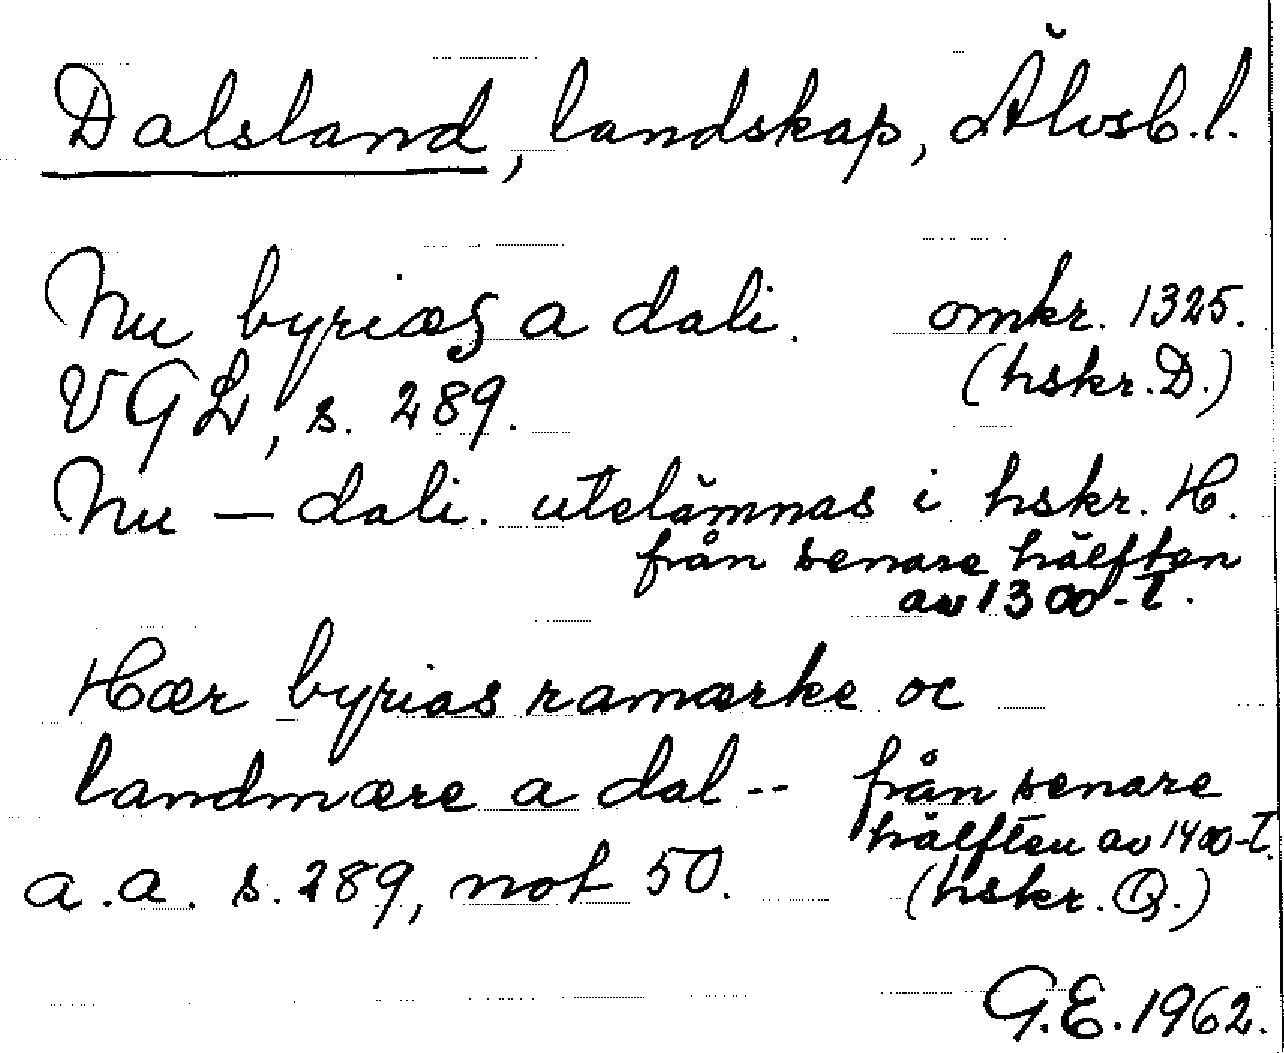 Dalsland, landskap, Älvsb.l.
Nu byriæs a dali. omkr. 1325.
VGL, s. 289. (hskr. D.)
Nu — dali. utelämnas i hskr. H.
från senare hälften
av 1300-t.
Hær byrias ramærke oc
landmære a dal -- från senare
hälften av 1400-t.
a.a. s. 289, not 50. (hskr. Q.)
G.E. 1962.